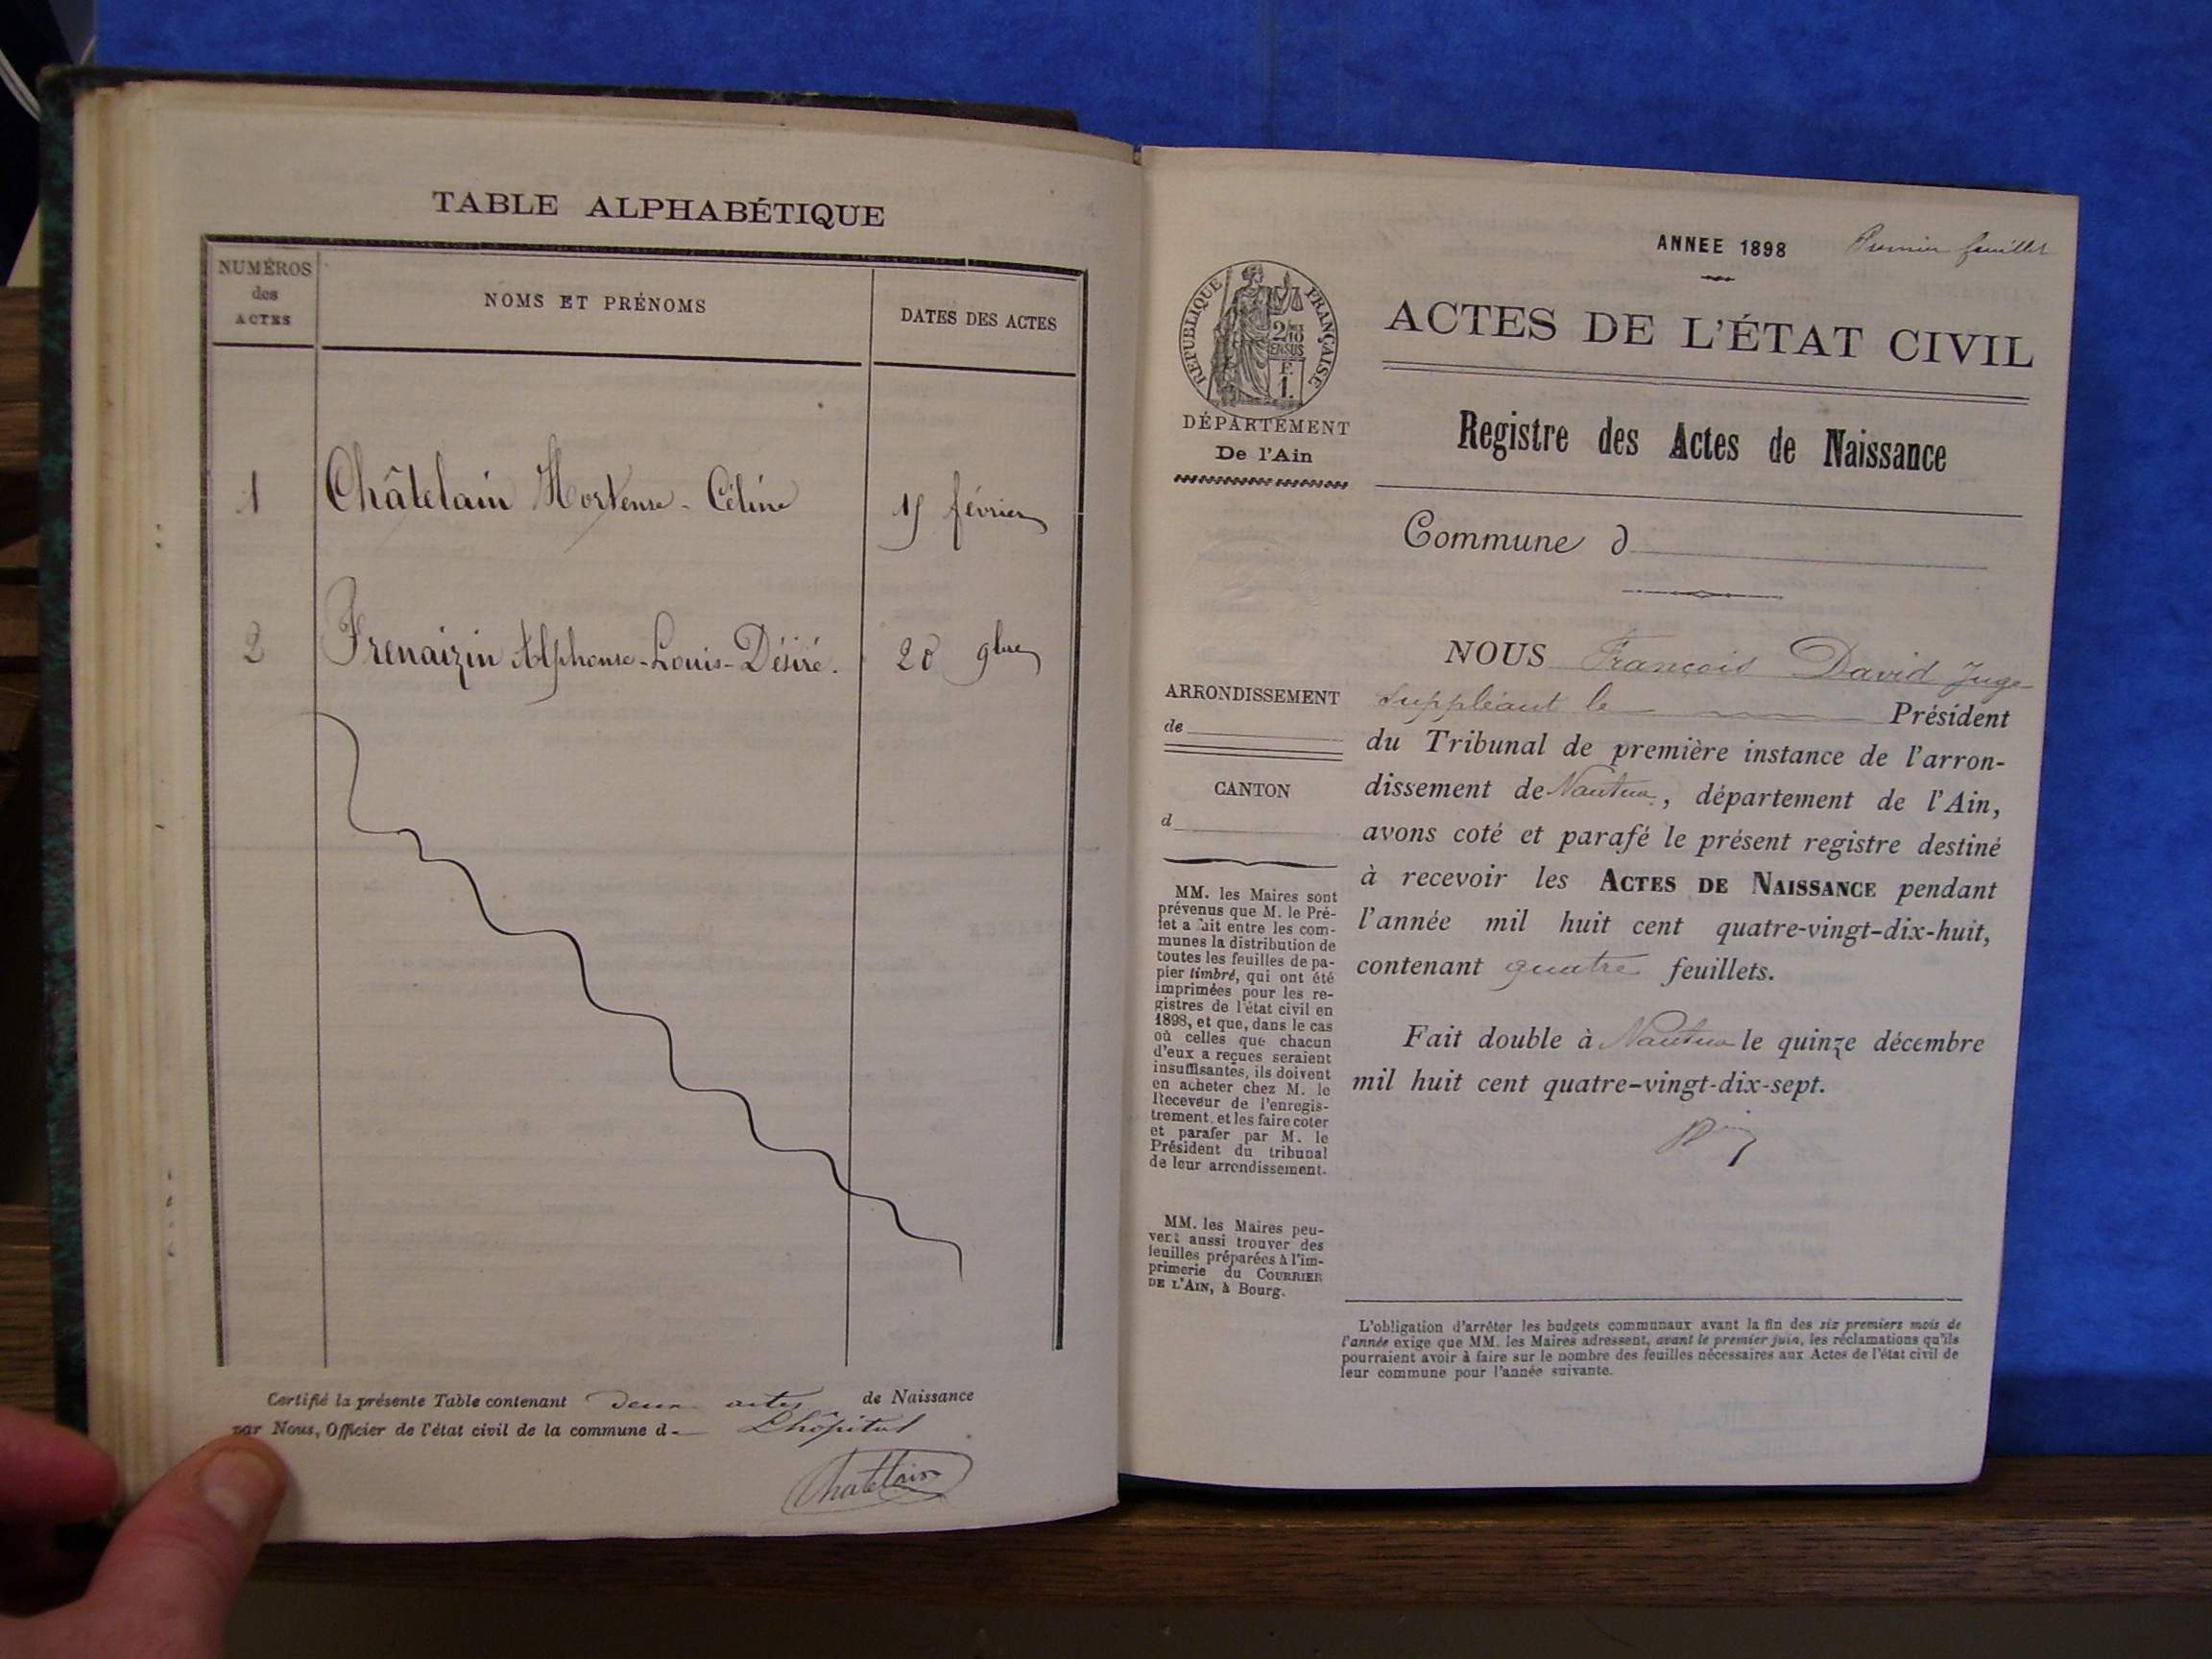 TABLE ALPHABÉTIQUE
NUMÉROS
des
ACTES
NOMS ET PRÉNOMS
DATES DES ACTES
1 Châtelain Hortense - Céline 15 février
2 Frenaizin Alphonse-Louis-Désiré. 28 9bre
Certifié la présente Table contenant deux actes de Naissance
par Nous, Officier de l'état civil de la commune d Lhôpital
Chatelain
ANNEE 1898 Premier feuillet
REPUBLIQUE FRANÇAISE
2/10
EN SUS
F.
1.
DÉPARTEMENT
De l'Ain
ACTES DE L'ÉTAT CIVIL
Registre des Actes de Naissance
Commune d
ARRONDISSEMENT
de
CANTON
d
MM. les Maires sont
prévenus que M. le Pré-
fet a fait entre les com-
munes la distribution de
toutes les feuilles de pa-
pier timbré, qui ont été
imprimées pour les re-
gistres de l'état civil en
1898, et que, dans le cas
où celles que chacun
d'eux a reçues seraient
insuffisantes, ils doivent
en acheter chez M. le
Receveur de l'enregis-
trement, et les faire coter
et parafer par M. le
Président du tribunal
de leur arrondissement.
MM. les Maires peu-
vent aussi trouver des
feuilles préparées à l'im-
primerie du COURRIER
DE L'AIN, à Bourg.
NOUS François David Juge
suppléant le Président
du Tribunal de première instance de l'arron-
dissement de Nantua, département de l'Ain,
avons coté et parafé le présent registre destiné
à recevoir les ACTES DE NAISSANCE pendant
l'année mil huit cent quatre-vingt-dix-huit,
contenant quatre feuillets.
Fait double à Nantua le quinze décembre
mil huit cent quatre-vingt-dix-sept.
L'obligation d'arrêter les budgets communaux avant la fin des six premiers mois de
l'année exige que MM. les Maires adressent, avant le premier juin, les réclamations qu'ils
pourraient avoir à faire sur le nombre des feuilles nécessaires aux Actes de l'état civil de
leur commune pour l'année suivante.